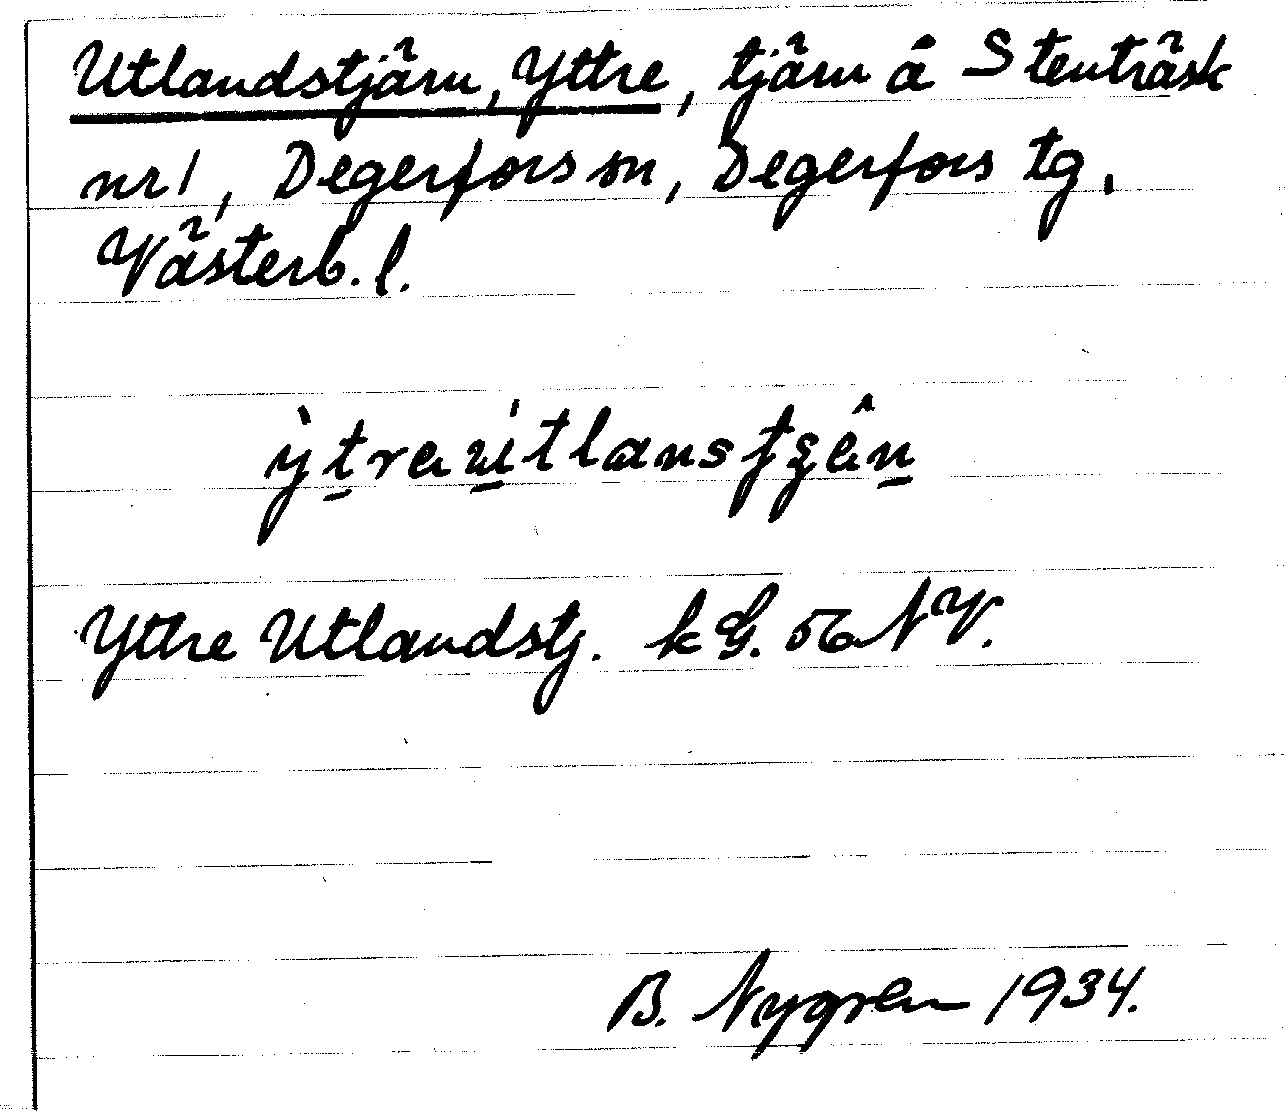 Utlandstjärn, Yttre, tjärn å Stenträsk
nr 1, Degerfors sn, Degerfors tg.
Västerb. l.
Yttre Utlandstj. k G. 56 NV.
B. Nygren 1934.